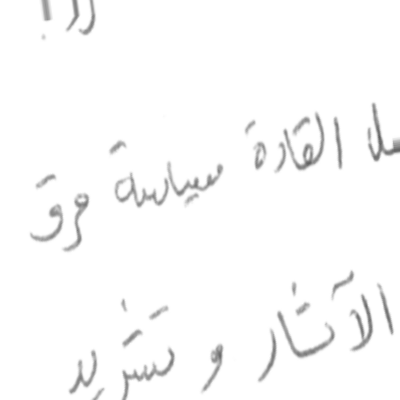 القادة سياسة فرق
الآثار و تشريد